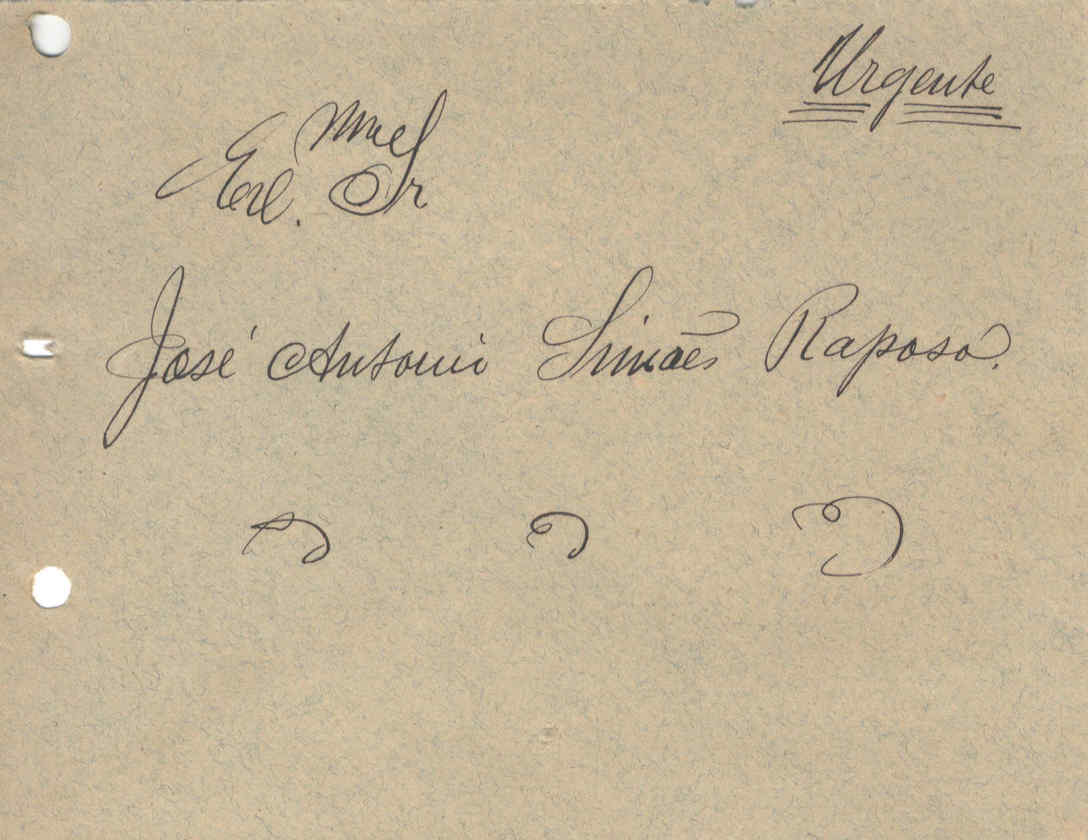 Urgente
Exl.mo Sr
José Antonio Simões Raposo.